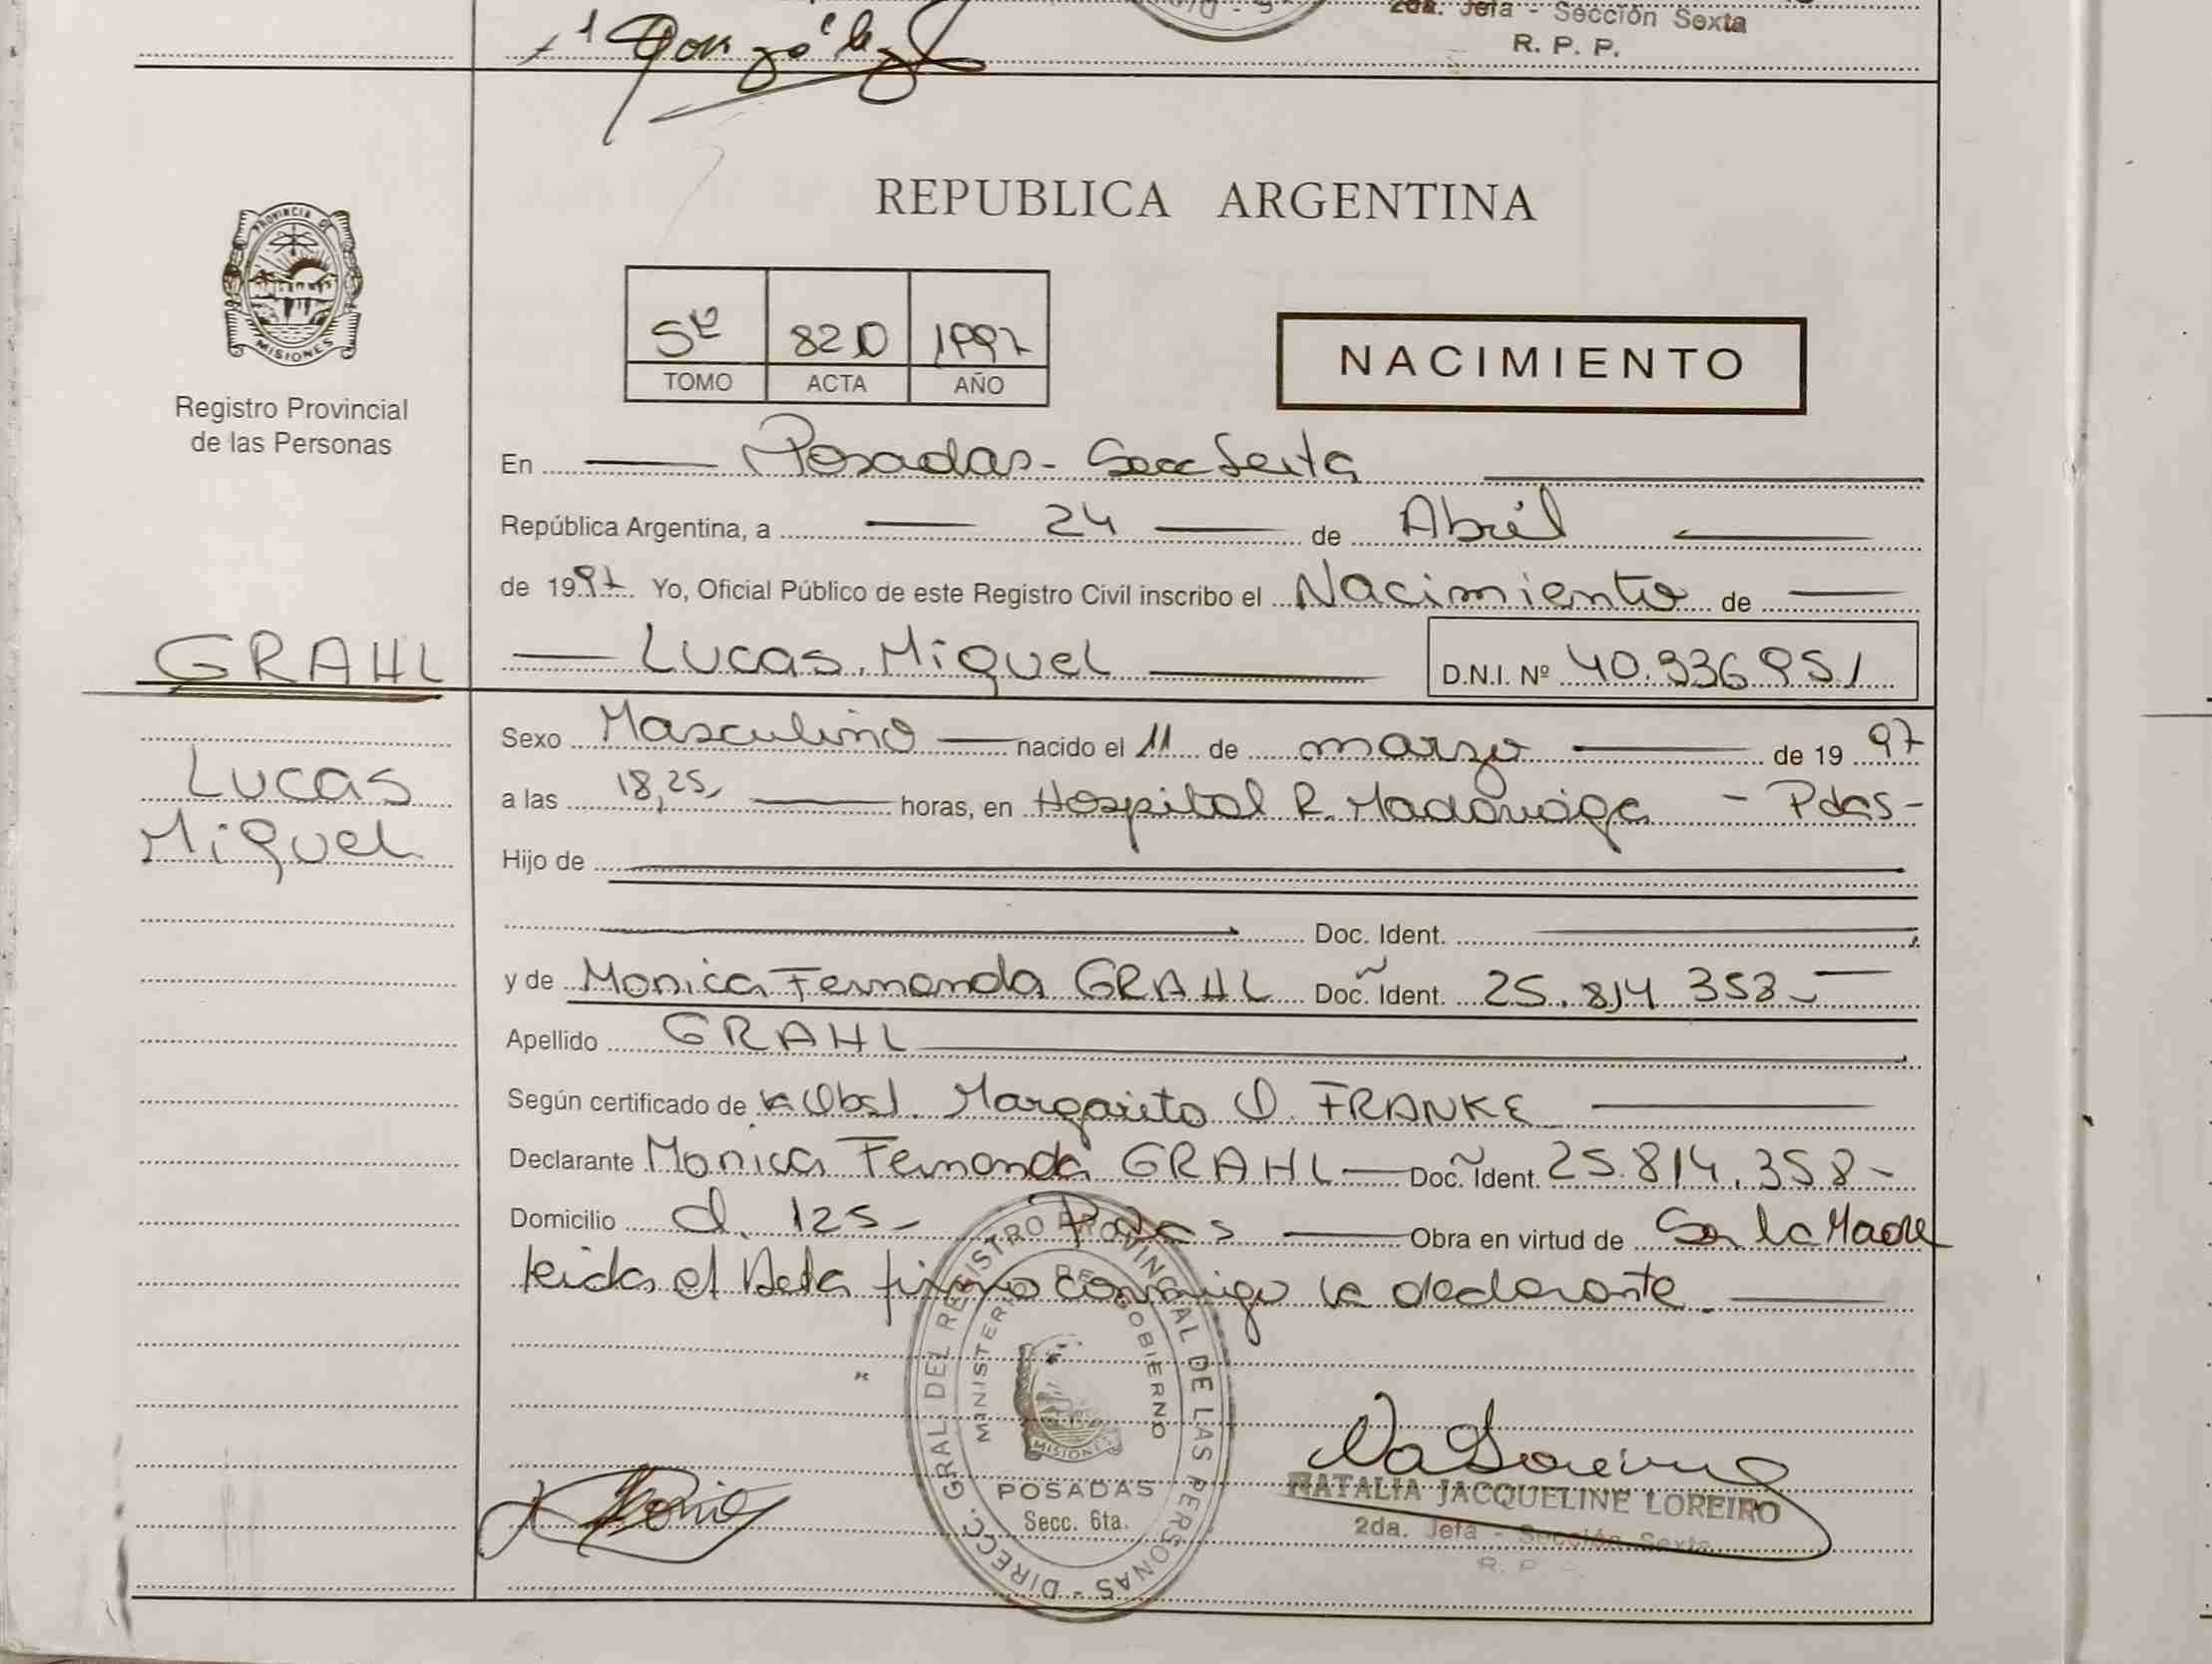 González
2da. Jefa - Sección Sexta
R. P. P.
PROVINCIA DE
MISIONES
Registro Provincial
de las Personas
REPUBLICA ARGENTINA
5º 820 1997
TOMO ACTA AÑO
NACIMIENTO
En Posadas - Secc Sexta
República Argentina, a 24 de Abril
de 1997. Yo, Oficial Público de este Registro Civil inscribo el Nacimiento de
GRAHL
Lucas Miguel D.N.I. Nº 40.936951
Sexo Masculino nacido el 11 de marzo de 19 97
Lucas
a las 18,25, horas, en Hospital R. Madariaga - Pdas-
Miguel
Hijo de
Doc. Ident.
y de Monica Fernanda GRAHL Doc. Ident. 25.814 358-
Apellido GRAHL
Según certificado de la Obst. Margarita D. FRANKE
Declarante Monica Fernanda GRAHL Doc. Ident. 25.814.358-
Domicilio 125- Pdas Obra en virtud de Ser la Madre
leida el Acta firma conmigo la declarante.
DIRECC. GRAL DEL REGISTRO PROVINCIAL DE LAS PERSONAS -
MINISTERIO DE GOBIERNO
MISIONES
POSADAS
Secc. 6ta.
NATALIA JACQUELINE LOREIRO
2da. Jefa - Sección Sexta
R. P.